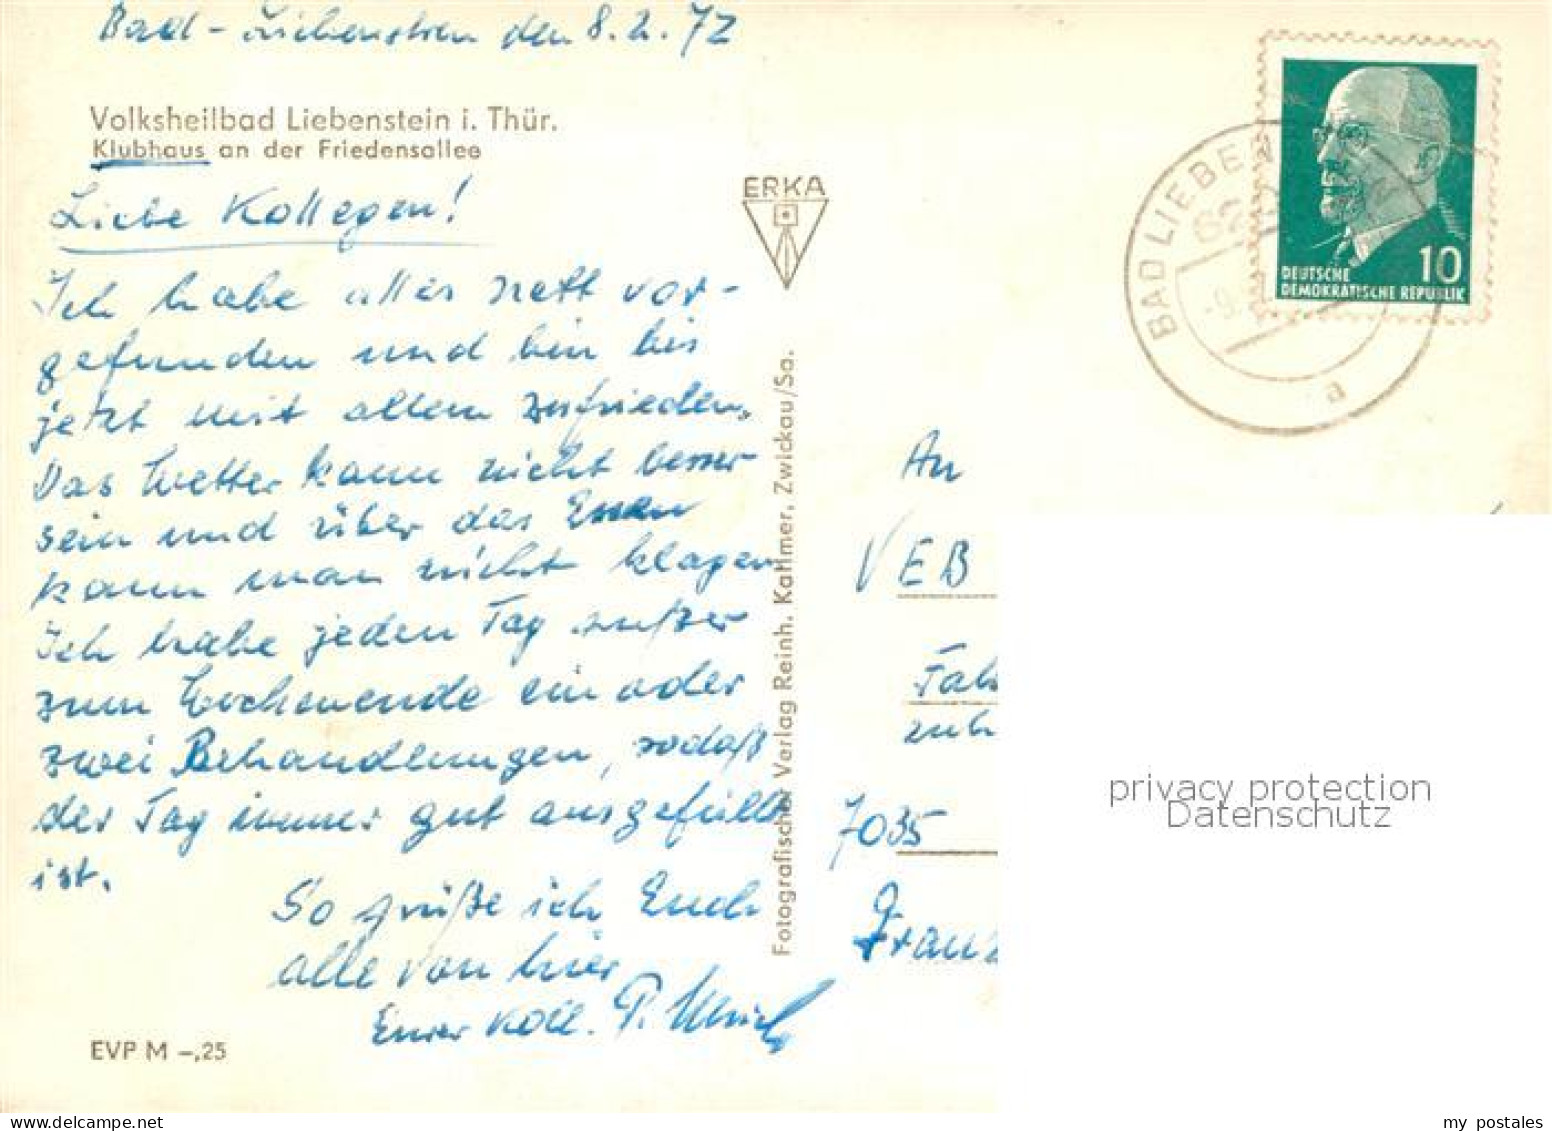 Bad-Liebenstein den 8.2.72
Volksheilbad Liebenstein i. Thür.
Klubhaus an der Friedensallee
Liebe Kollegen!
Ich habe alles nett vor-
gefunden und bin bis
jetzt mit allem zufrieden.
Das Wetter kann nicht besser
sein und über das Essen
kann man nicht klagen
Ich habe jeden Tag außer
zum Wochenende ein oder
zwei Behandlungen, sodaß
der Tag immer gut ausgefüllt
ist.
So grüße ich Euch
alle von hier
Euer Koll. P.
EVP M –,25
ERKA
Fotografischer Verlag Reinh. Kallmer, Zwickau/Sa.
BAD LIEBEN
-9.
a
10
DEUTSCHE
DEMOKRATISCHE REPUBLIK
An
VEB
7035
Franz
privacy protection
Datenschutz
my postales